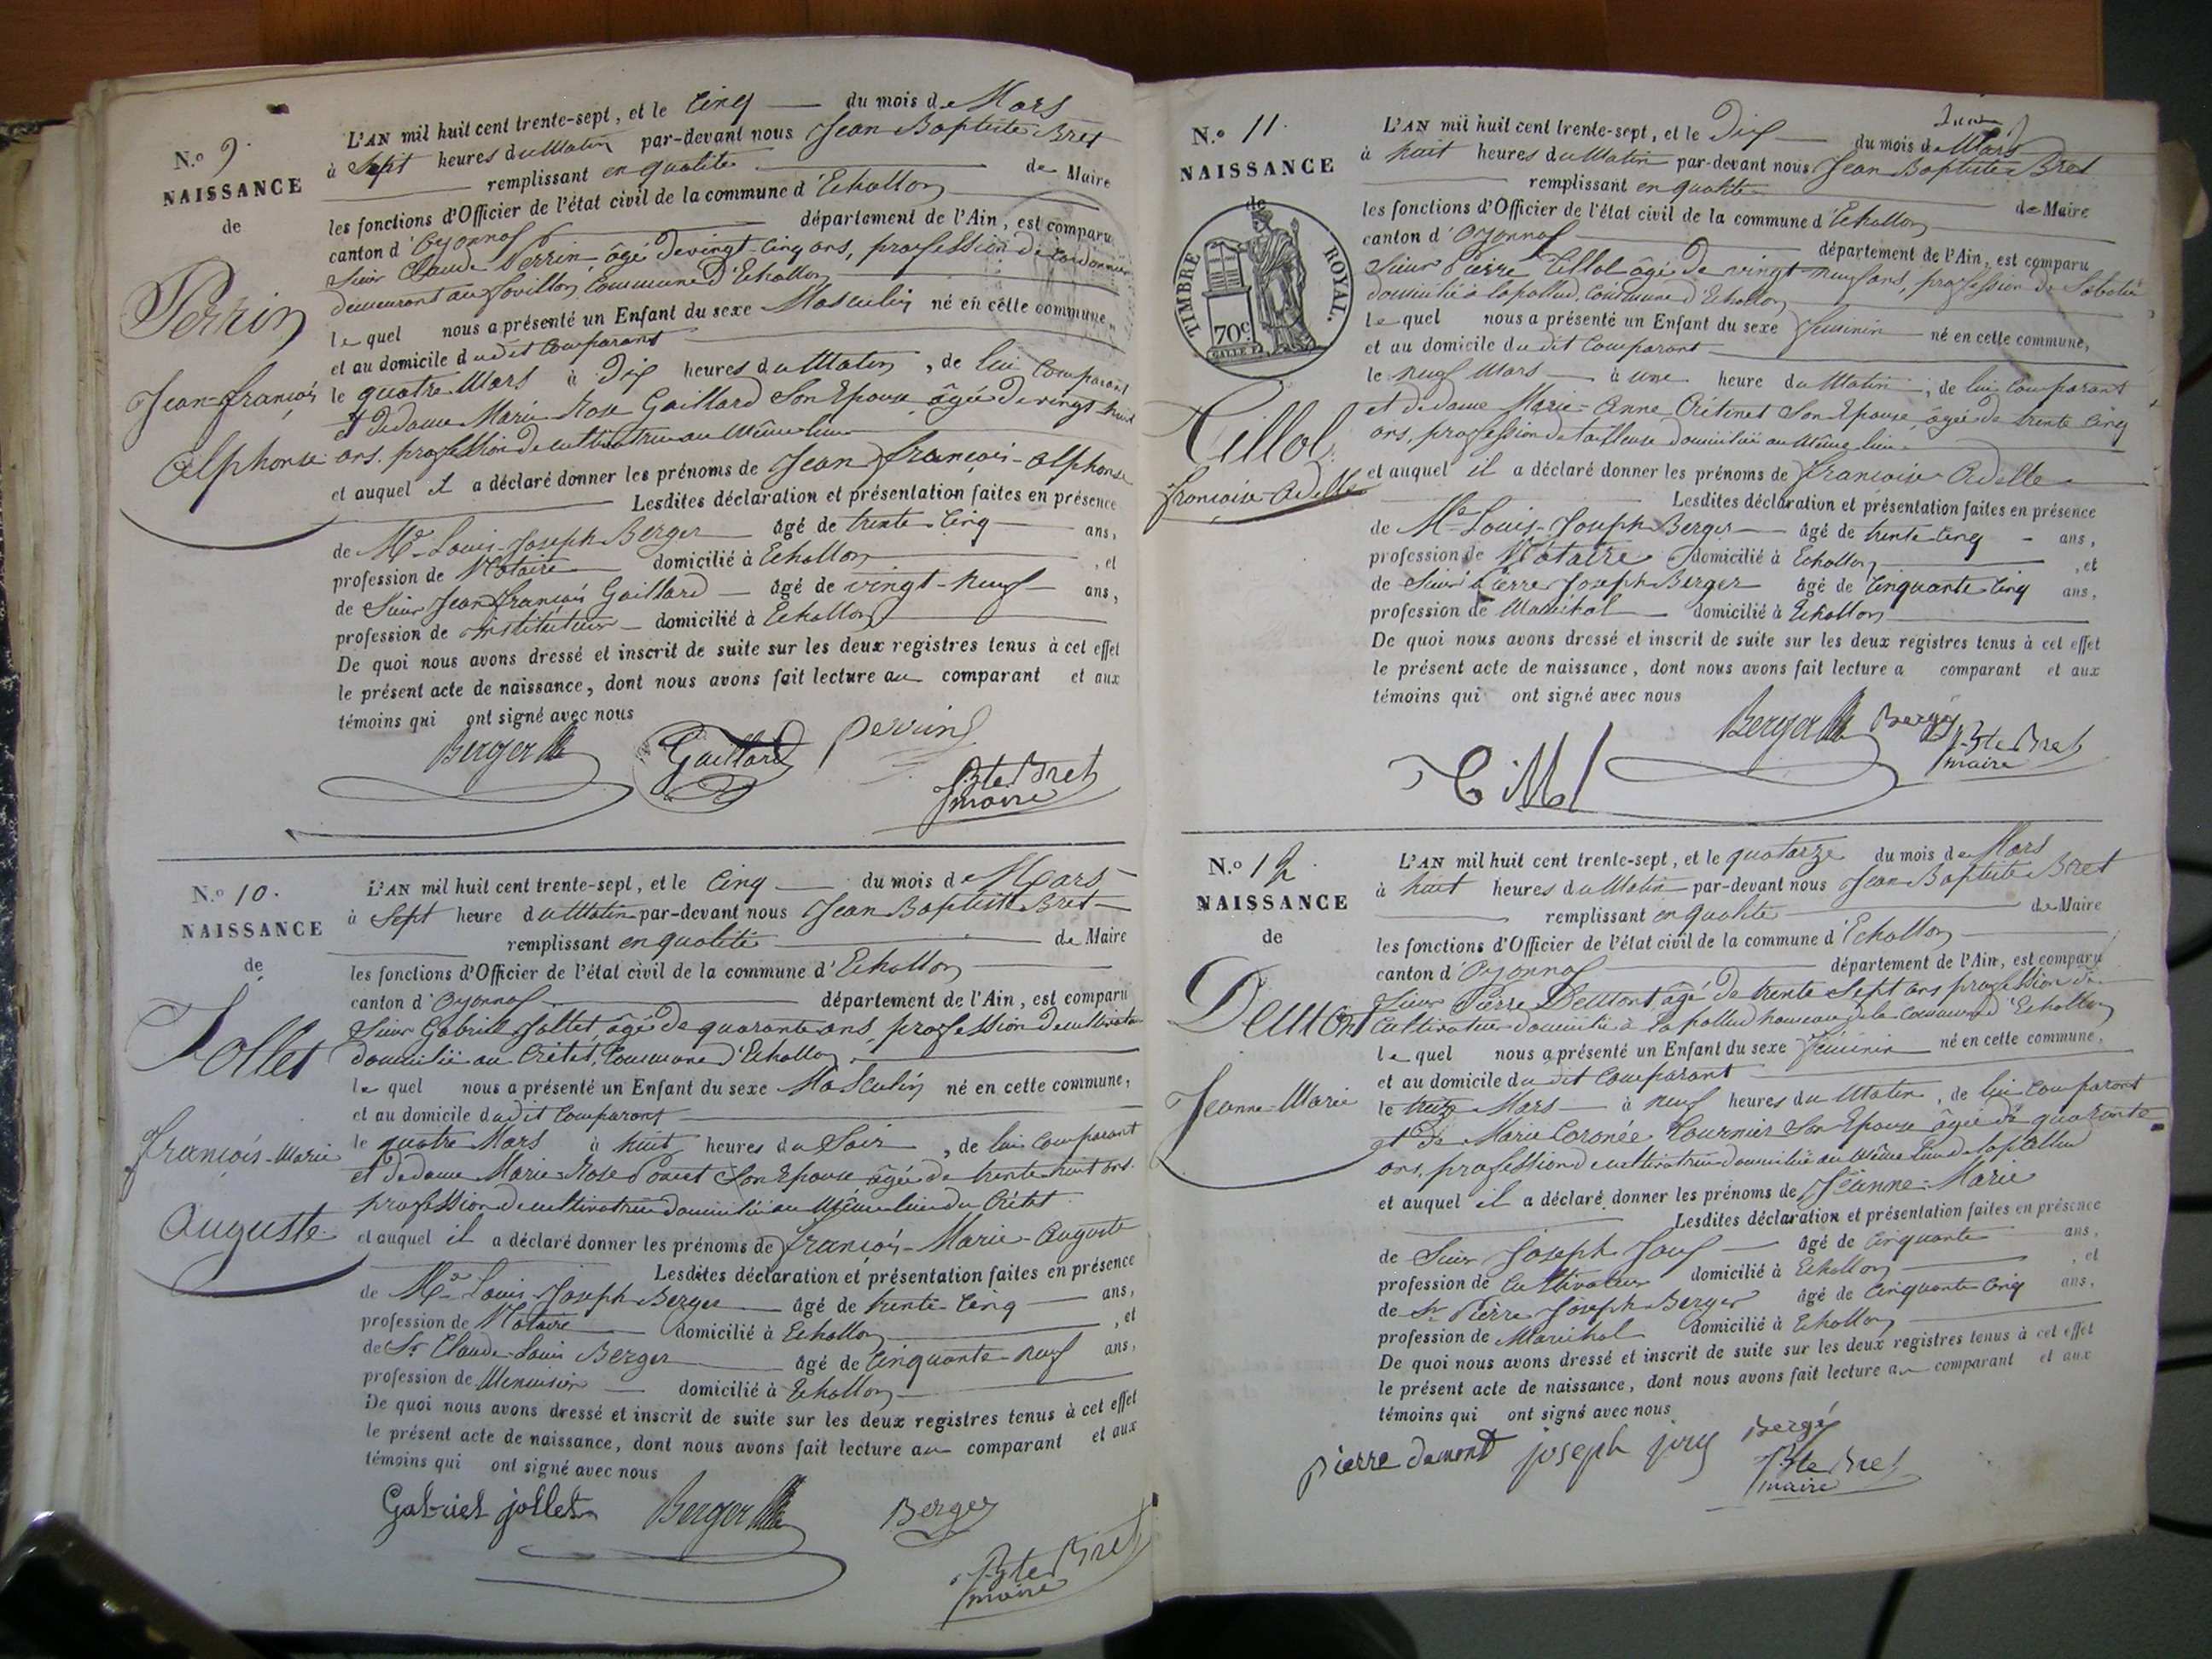 N.o 9.
NAISSANCE
de
Perrin
Jean-françois
Alphonse
L'AN mil huit cent trente-sept, et le Cinq du mois de Mars
à Sept heures du Matin par-devant nous Jean Baptiste Bret
remplissant en qualité de Maire
les fonctions d'Officier de l'état civil de la commune d'Echallon
canton d'Oyonnax département de l'Ain, est comparu
Sieur Claude Perrin, âgé de vingt-cinq ans, profession de Cordonnier
demeurant au favillon Commune d'Echallon
le quel nous a présenté un Enfant du sexe Masculin né en cette commune,
et au domicile dudit Comparant
le quatre Mars à Dix heures du Matin, de lui Comparant
et de dame Marie Rose Gaillard Son Epouse, âgée de vingt-huit
ans, profession de cultivatrice au Même lieu
et auquel il a déclaré donner les prénoms de Jean françois-Alphonse
Lesdites déclaration et présentation faites en présence
de Me Louis-Joseph Berger âgé de trente-Cinq ans,
profession de Notaire domicilié à Echallon, et
de Sieur Jean françois Gaillard âgé de vingt-neuf ans,
profession de instituteur domicilié à Echallon
De quoi nous avons dressé et inscrit de suite sur les deux registres tenus à cet effet
le présent acte de naissance, dont nous avons fait lecture au comparant et aux
témoins qui ont signé avec nous
Berger Gaillard perrin
J Bte Bret
maire
N.o 10.
NAISSANCE
de
Jollet
françois-Marie
Auguste
L'AN mil huit cent trente-sept, et le Cinq du mois de Mars
à Sept heure du Matin par-devant nous Jean Baptiste Bret
remplissant en qualité de Maire
les fonctions d'Officier de l'état civil de la commune d'Echallon
canton d'Oyonnax département de l'Ain, est comparu
Sieur Gabriel Jollet, âgé de quarante ans, profession de cultivateur
domicilié au Crétet, Commune d'Echallon
le quel nous a présenté un Enfant du sexe Masculin né en cette commune,
et au domicile dudit Comparant
le quatre Mars à huit heures du Soir, de lui Comparant
et de dame Marie-Rose Poncet Son Epouse âgée de trente-huit ans.
profession de cultivatrice domiciliée au Même lieu du Crétet
et auquel il a déclaré donner les prénoms de françois-Marie-Auguste
Lesdites déclaration et présentation faites en présence
de Me Louis-Joseph Berger âgé de trente-Cinq ans,
profession de Notaire domicilié à Echallon, et
de Sr Claude-Louis Berger âgé de Cinquante-neuf ans,
profession de Menuisier domicilié à Echallon
De quoi nous avons dressé et inscrit de suite sur les deux registres tenus à cet effet
le présent acte de naissance, dont nous avons fait lecture au comparant et aux
témoins qui ont signé avec nous
Gabriel jollet Berger Berger
J Bte Bret
maire
N.o 11.
NAISSANCE
de
TIMBRE ROYAL.
70c
Tillol
françoise Adelle
L'AN mil huit cent trente-sept, et le Dix du mois de Mars
à huit heures du Matin par-devant nous Jean Baptiste Bret
remplissant en qualité de Maire
les fonctions d'Officier de l'état civil de la commune d'Echallon
canton d'Oyonnax département de l'Ain, est comparu
Sieur Pierre Tillol âgé de vingt neuf ans, profession de Sabotier
domicilié à lapallud, Commune d'Echallon
le quel nous a présenté un Enfant du sexe feminin né en cette commune,
et au domicile du dit Comparant
le neuf Mars à une heure du Matin, de lui Comparant
et de dame Marie-Anne Crétinet Son Epouse, âgée de trente Cinq
ans, profession de tailleuse domiciliée au Même lieu
et auquel il a déclaré donner les prénoms de françoise Adelle
Lesdites déclaration et présentation faites en présence
de Me Louis-Joseph Berger âgé de trente Cinq ans,
profession de Notaire domicilié à Echallon, et
de Sieur Pierre Joseph Berger âgé de Cinquante Cinq ans,
profession de Maréchal domicilié à Echallon
De quoi nous avons dressé et inscrit de suite sur les deux registres tenus à cet effet
le présent acte de naissance, dont nous avons fait lecture a comparant et aux
témoins qui ont signé avec nous
Berger Berger
J-Bte Bret
maire
N.o 12.
NAISSANCE
de
Demont
Jeanne-Marie
L'AN mil huit cent trente-sept, et le quatorze du mois de Mars
à huit heures du Matin par-devant nous Jean Baptiste Bret
remplissant en qualité de Maire
les fonctions d'Officier de l'état civil de la commune d'Echallon
canton d'Oyonnax département de l'Ain, est comparu
Sieur Pierre Demont âgé de trente Sept ans profession de
Cultivateur domicilié à la pallud hameau de la Commune d'Echallon
le quel nous a présenté un Enfant du sexe feminin né en cette commune,
et au domicile du dit Comparant
le treize Mars à neuf heures du Matin, de lui Comparant
et de Marie Tournier Son Epouse âgée de quarante
ans, profession de cultivatrice domiciliée au Même lieu de lapallud
et auquel il a déclaré donner les prénoms de Jeanne-Marie
Lesdites déclaration et présentation faites en présence
de Sieur Joseph âgé de Cinquante ans,
profession de Cultivateur domicilié à Echallon, et
de Sr Pierre Joseph Berger âgé de Cinquante Cinq ans,
profession de Maréchal domicilié à Echallon
De quoi nous avons dressé et inscrit de suite sur les deux registres tenus à cet effet
le présent acte de naissance, dont nous avons fait lecture au comparant et aux
témoins qui ont signé avec nous
pierre demont joseph Berger
J Bte Bret
maire